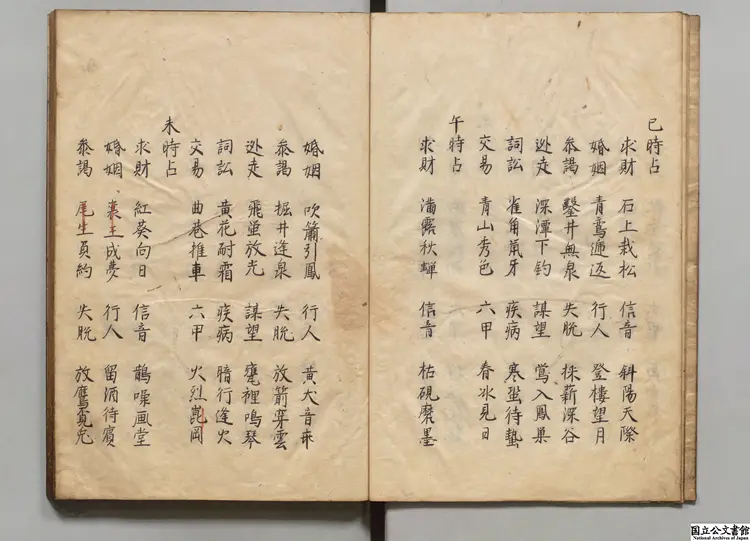 巳時占
求財 石上栽松 信音 斜陽天際
婚姻 青鸞逓返 行人 登樓望月
叅謁 鑿井無泉 失脫 採薪深谷
迯走 深潭下釣 謀望 鶯入鳳巢
詞訟 雀角鼠牙 疾病 寒蛩待蟄
交易 青山秀色 六甲 春冰見日
午時占
求財 滿露秋蟬 信音 枯硯磨墨
婚姻 吹簫引鳳 行人 黃犬音乖
叅謁 掘井逢泉 失脫 放箭穿雲
迯走 飛螢放光 謀望 甕裡鳴琴
詞訟 黃花耐霜 疾病 暗行逢火
交易 曲巷推車 六甲 火烈崑岡
未時占
求財 紅葵向日 信音 鵲噪画堂
婚姻 襄王成夢 行人 留酒待賓
叅謁 尾生負約 失脫 放鷹覓兔
国立公文書館
National Archives of Japan